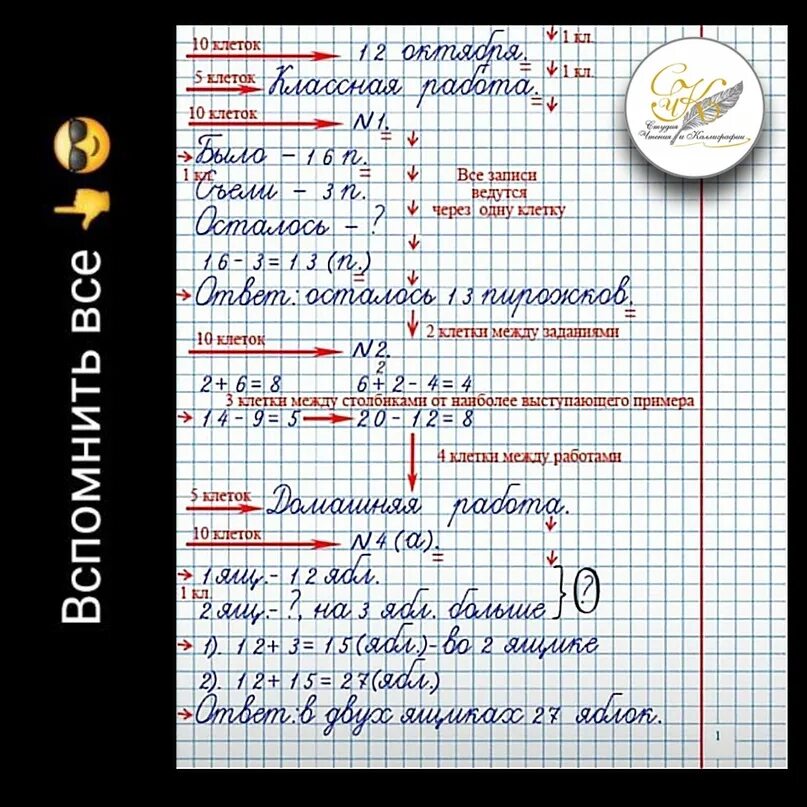 Вспомнить все
10 клеток 12 октября. 1 кл.
5 клеток Классная работа. 1 кл.
Студия
Чтения и Каллиграфии
10 клеток №1.
Было – 16 п.
1 кл. Съели – 3 п.
Все записи
ведутся
через одну клетку
Осталось – ?
16 - 3 = 13 (п.)
Ответ: осталось 13 пирожков.
2 клетки между заданиями
10 клеток №2.
2
2 + 6 = 8 6 + 2 - 4 = 4
3 клетки между столбиками от наиболее выступающего примера
14 - 9 = 5 20 - 12 = 8
4 клетки между работами
5 клеток Домашняя работа.
10 клеток №4 (а).
1 ящ. - 12 ябл.
1 кл.
2 ящ. - ?, на 3 ябл. больше } ?
1). 12 + 3 = 15 (ябл.) - во 2 ящике
2). 12 + 15 = 27 (ябл.)
Ответ: в двух ящиках 27 яблок.
1